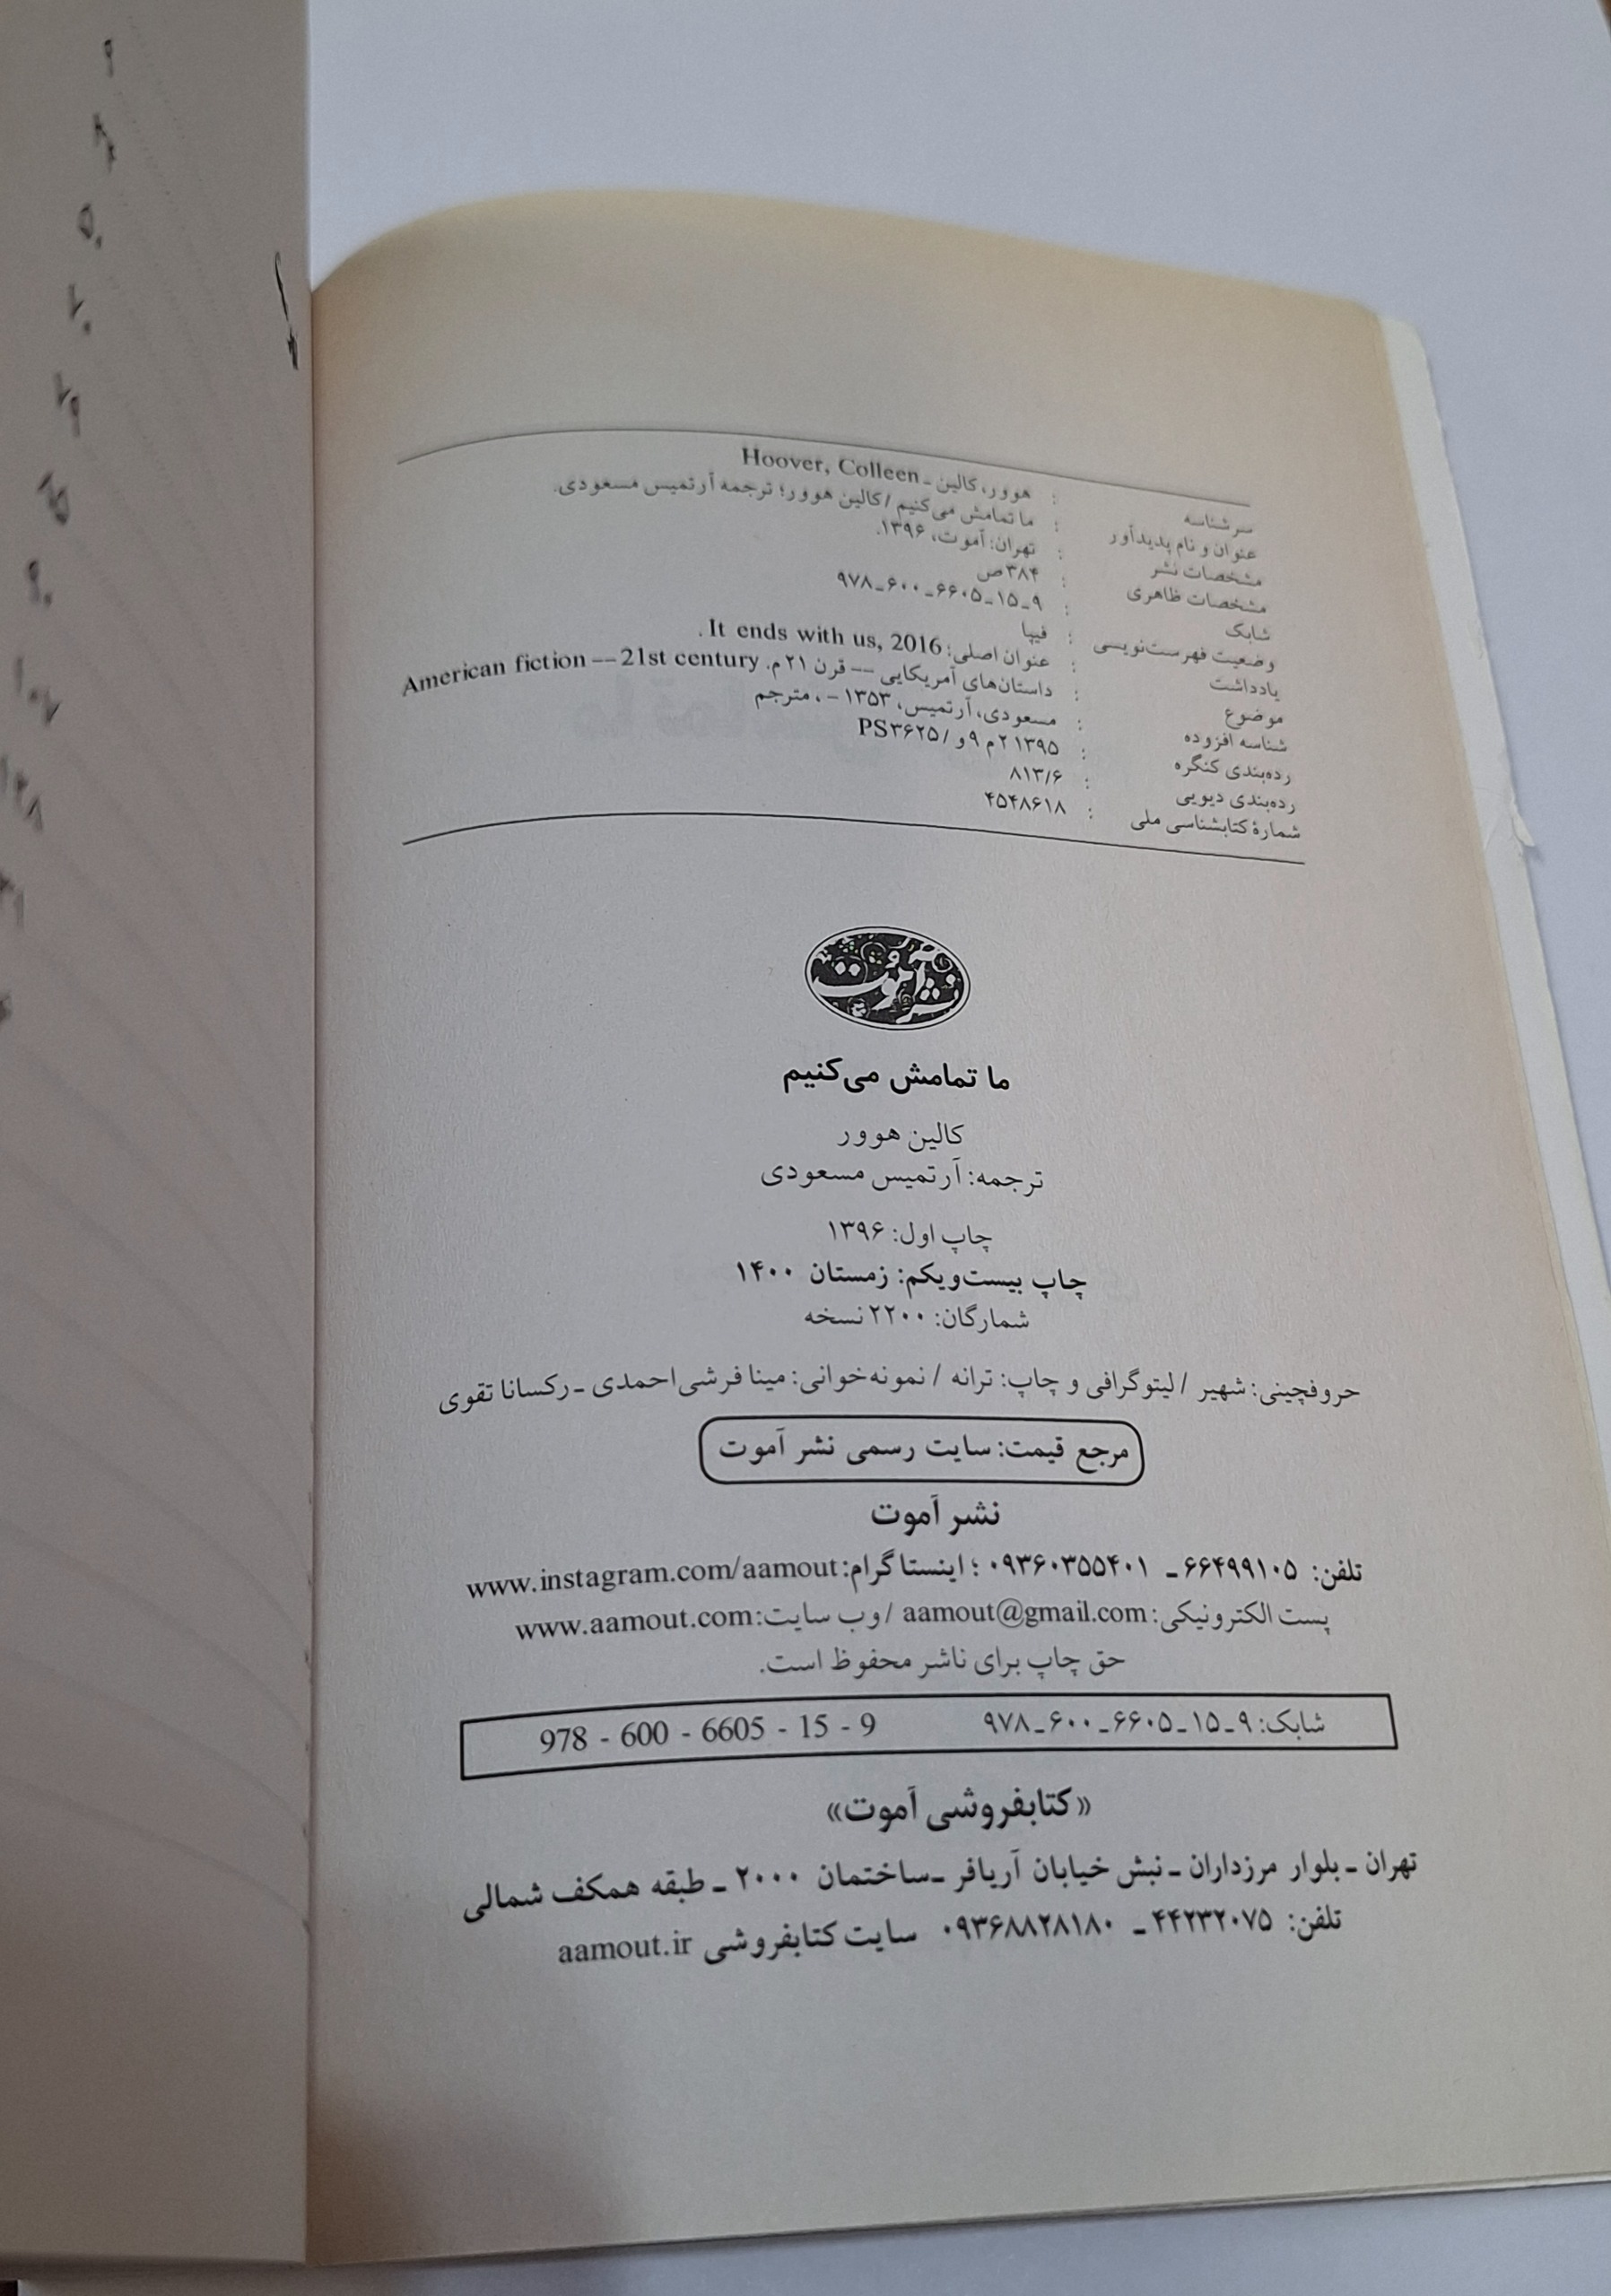 سرشناسه : هوور، کالین ـ Hoover, Colleen
عنوان و نام پدیدآور : ما تمامش می‌کنیم / کالین هوور؛ ترجمه آرتمیس مسعودی.
مشخصات نشر : تهران: آموت، ۱۳۹۶.
مشخصات ظاهری : ۳۸۴ص
شابک : ۹۷۸ـ۶۰۰ـ۶۶۰۵ـ۱۵ـ۹
وضعیت فهرست‌نویسی : فیپا
یادداشت : عنوان اصلی: It ends with us, 2016 .
موضوع : داستان‌های آمریکایی -- قرن ۲۱ م. American fiction -- 21st century
شناسه افزوده : مسعودی، آرتمیس، ۱۳۵۳ - ، مترجم
رده‌بندی کنگره : ۱۳۹۵ ۲م ۹و / PS۳۶۲۵
رده‌بندی دیویی : ۸۱۳/۶
شمارهٔ کتابشناسی ملی : ۴۵۴۸۶۱۸
نشر آموت
ما تمامش می‌کنیم
کالین هوور
ترجمه: آرتمیس مسعودی
چاپ اول: ۱۳۹۶
چاپ بیست‌ویکم: زمستان ۱۴۰۰
شمارگان: ۲۲۰۰ نسخه
حروفچینی: شهیر / لیتوگرافی و چاپ: ترانه / نمونه‌خوانی: مینا فرشی‌احمدی ـ رکسانا تقوی
مرجع قیمت: سایت رسمی نشر آموت
نشر آموت
تلفن: ۶۶۴۹۹۱۰۵ ـ ۰۹۳۶۰۳۵۵۴۰۱ ؛ اینستاگرام: www.instagram.com/aamout
پست الکترونیکی: aamout@gmail.com / وب سایت: www.aamout.com
حق چاپ برای ناشر محفوظ است.
شابک: ۹۷۸ـ۶۰۰ـ۶۶۰۵ـ۱۵ـ۹ 978 - 600 - 6605 - 15 - 9
«کتابفروشی آموت»
تهران ـ بلوار مرزداران ـ نبش خیابان آریافر ـ ساختمان ۲۰۰۰ ـ طبقه همکف شمالی
تلفن: ۴۴۲۳۲۰۷۵ ـ ۰۹۳۶۸۸۲۸۱۸۰ سایت کتابفروشی aamout.ir